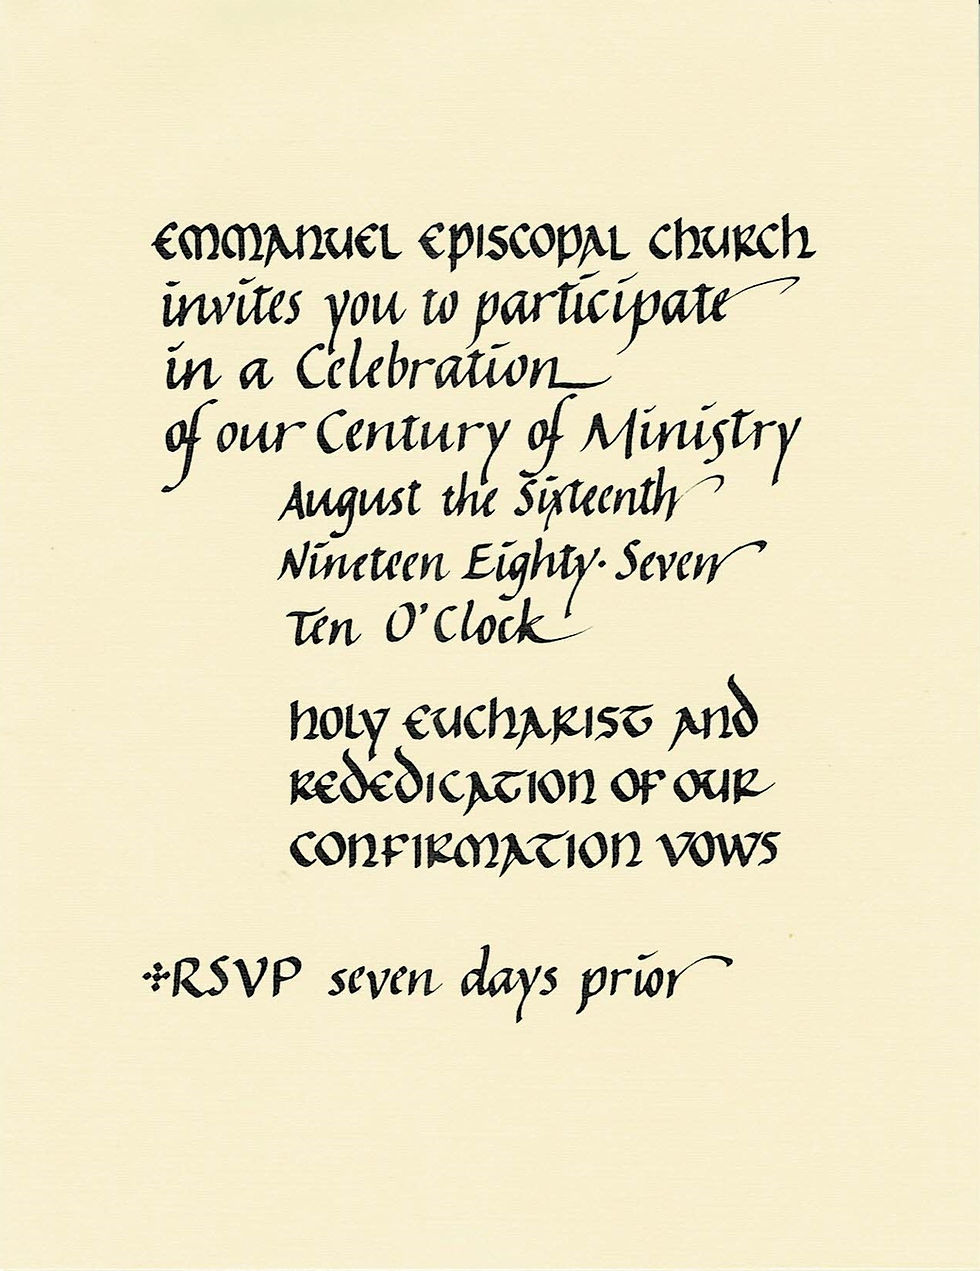 Emmanuel Episcopal Church
invites you to participate
in a Celebration
of our Century of Ministry
August the Sixteenth
Nineteen Eighty·Seven
Ten O'Clock
Holy Eucharist and
Rededication of our
Confirmation Vows
✣RSVP seven days prior